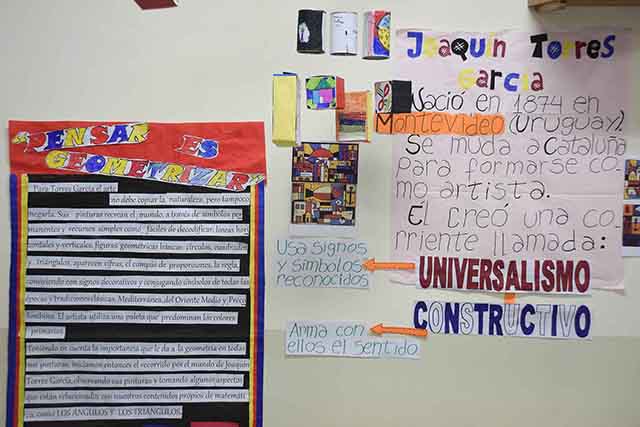 "PENSAR ES
GEOMETRIZAR"
Para Torres García el arte
no debe copiar la naturaleza, pero tampoco
negarla. Sus pinturas recrean el mundo, a través de símbolos per
manentes y recursos simples como fáciles de decodificar: líneas hori
zontales y verticales, figuras geométricas básicas: círculos, cuadrados
y triángulos, aparecen cifras, el compás de proporciones, la regla,
conviviendo con signos decorativos y conjugando símbolos de todas las
épocas y tradiciones: clásicas, Mediterránea, del Oriente Medio y Preco
lombina. El artista utiliza una paleta que predominan los colores
primarios.
Teniendo en cuenta la importancia que le da a la geometría en todas
sus pinturas, iniciamos entonces el recorrido por el mundo de Joaquín
Torres García, observando sus pinturas y tomando algunos aspectos
que están relacionados con nuestros contenidos propios de matemáti
ca, como LOS ÁNGULOS Y LOS TRIÁNGULOS.
Joaquín Torres
García
Nació en 1874 en
Montevideo (Uruguay).
Se muda a Cataluña
para formarse co
mo artista.
Él creó una co
rriente llamada:
UNIVERSALISMO
CONSTRUCTIVO
Usa signos
y símbolos
reconocidos
Arma con
ellos el sentido